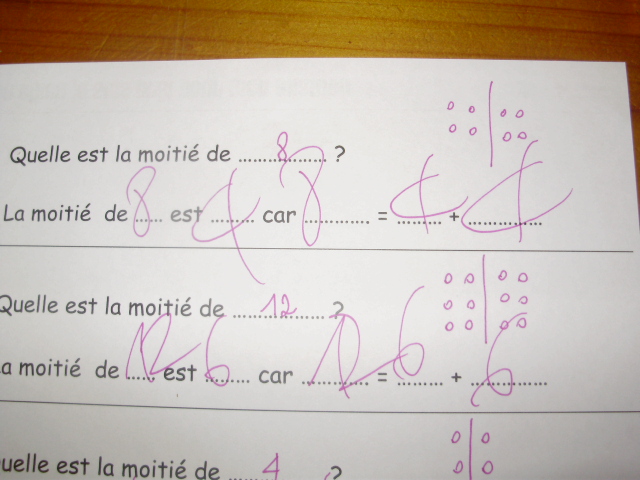 Quelle est la moitié de ...8... ?
La moitié de 8 est 4 car 8 = 4 + 4
Quelle est la moitié de ...12... ?
La moitié de 12 est 6 car 12 = 6 + 6
uelle est la moitié de ...4... ?